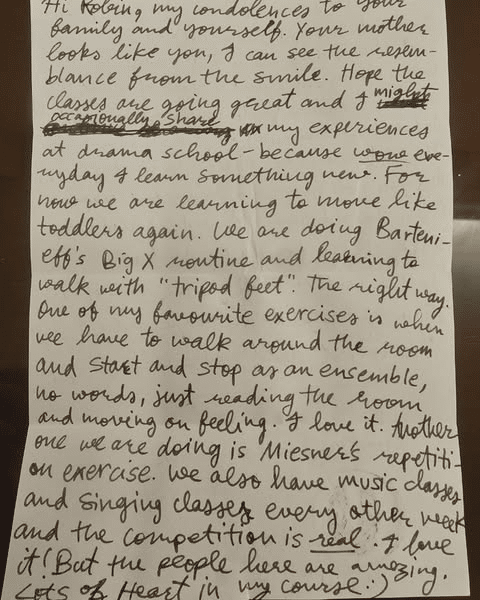 Hi Robing my condolences to your
family and yourself. Your mother
looks like you, I can see the resem-
blance from the smile. Hope the
classes are going great and I might
occasionally share my experiences
at drama school - because eve-
ryday I learn something new. For
now we are learning to move like
toddlers again. We are doing Barteni-
eff's Big X routine and learning to
walk with "tripod feet". The right way.
One of my favourite exercises is when
we have to walk around the room
and start and stop as an ensemble,
no words, just reading the room
and moving on feeling. I love it. Another
one we are doing is Miesner's repetiti-
on exercise. We also have music classes
and singing classes every other week
and the competition is real. I love
it! But the people here are amazing.
Lots of Heart in my course :)